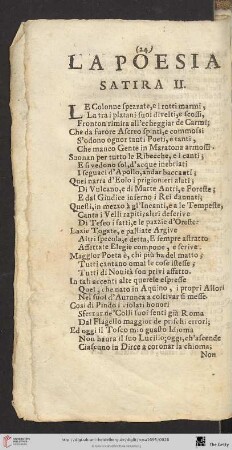 (24)
LA POESIA
SATIRA II.
LE Colonne spezzate, e i rotti marmi,
Là tra i platani suoi divelti, e scossi,
Fronton rimira all'echeggiar de Carmi;
Che da furore Ascreo spinti, e commossi
S'odono ognor tanti Poeti, e tanti,
Che manco Gente in Maratona armossi.
Suonan per tutto le Ribecche, e i canti;
E si vedono sol, d'acque inebriati
I seguaci d'Apollo, andar baccanti;
Quei narra d'Eolo i prigionieri afiati;
Di Vulcano, e di Marte Antri, e Foreste;
E dal Giudice inferno i Rei dannati;
Questi, in mezzo à gl'Incanti, e a le Tempeste,
Canta i Velli rapiti; altri descrive
Di Teseo i fatti, e le pazzie d'Oreste:
Lazie Togate, e palliate Argive
Altri specola, e detta, E sempre astratto
Affettate Elegie compone, e scrive:
Maggior Poeta è, chi più hà del matto;
Tutti cantano omai le cose istesse;
Tutti di Novità son privi affatto.
In tali accenti alte querele espresse
Quel, che nato in Aquino, i propri Allori
Nel suol d'Aurunca a coltivar si messe.
Così di Pindo i violati honori
Sferzar ne' Colli suoi sentì già Roma
Dal Flagello maggior de prischi errori;
Ed oggi il Tosco mio guasto Idioma
Non haurà il suo Lucilio; oggi, ch'ascende
Ciascuno in Dirce a coronar la chioma;
Non